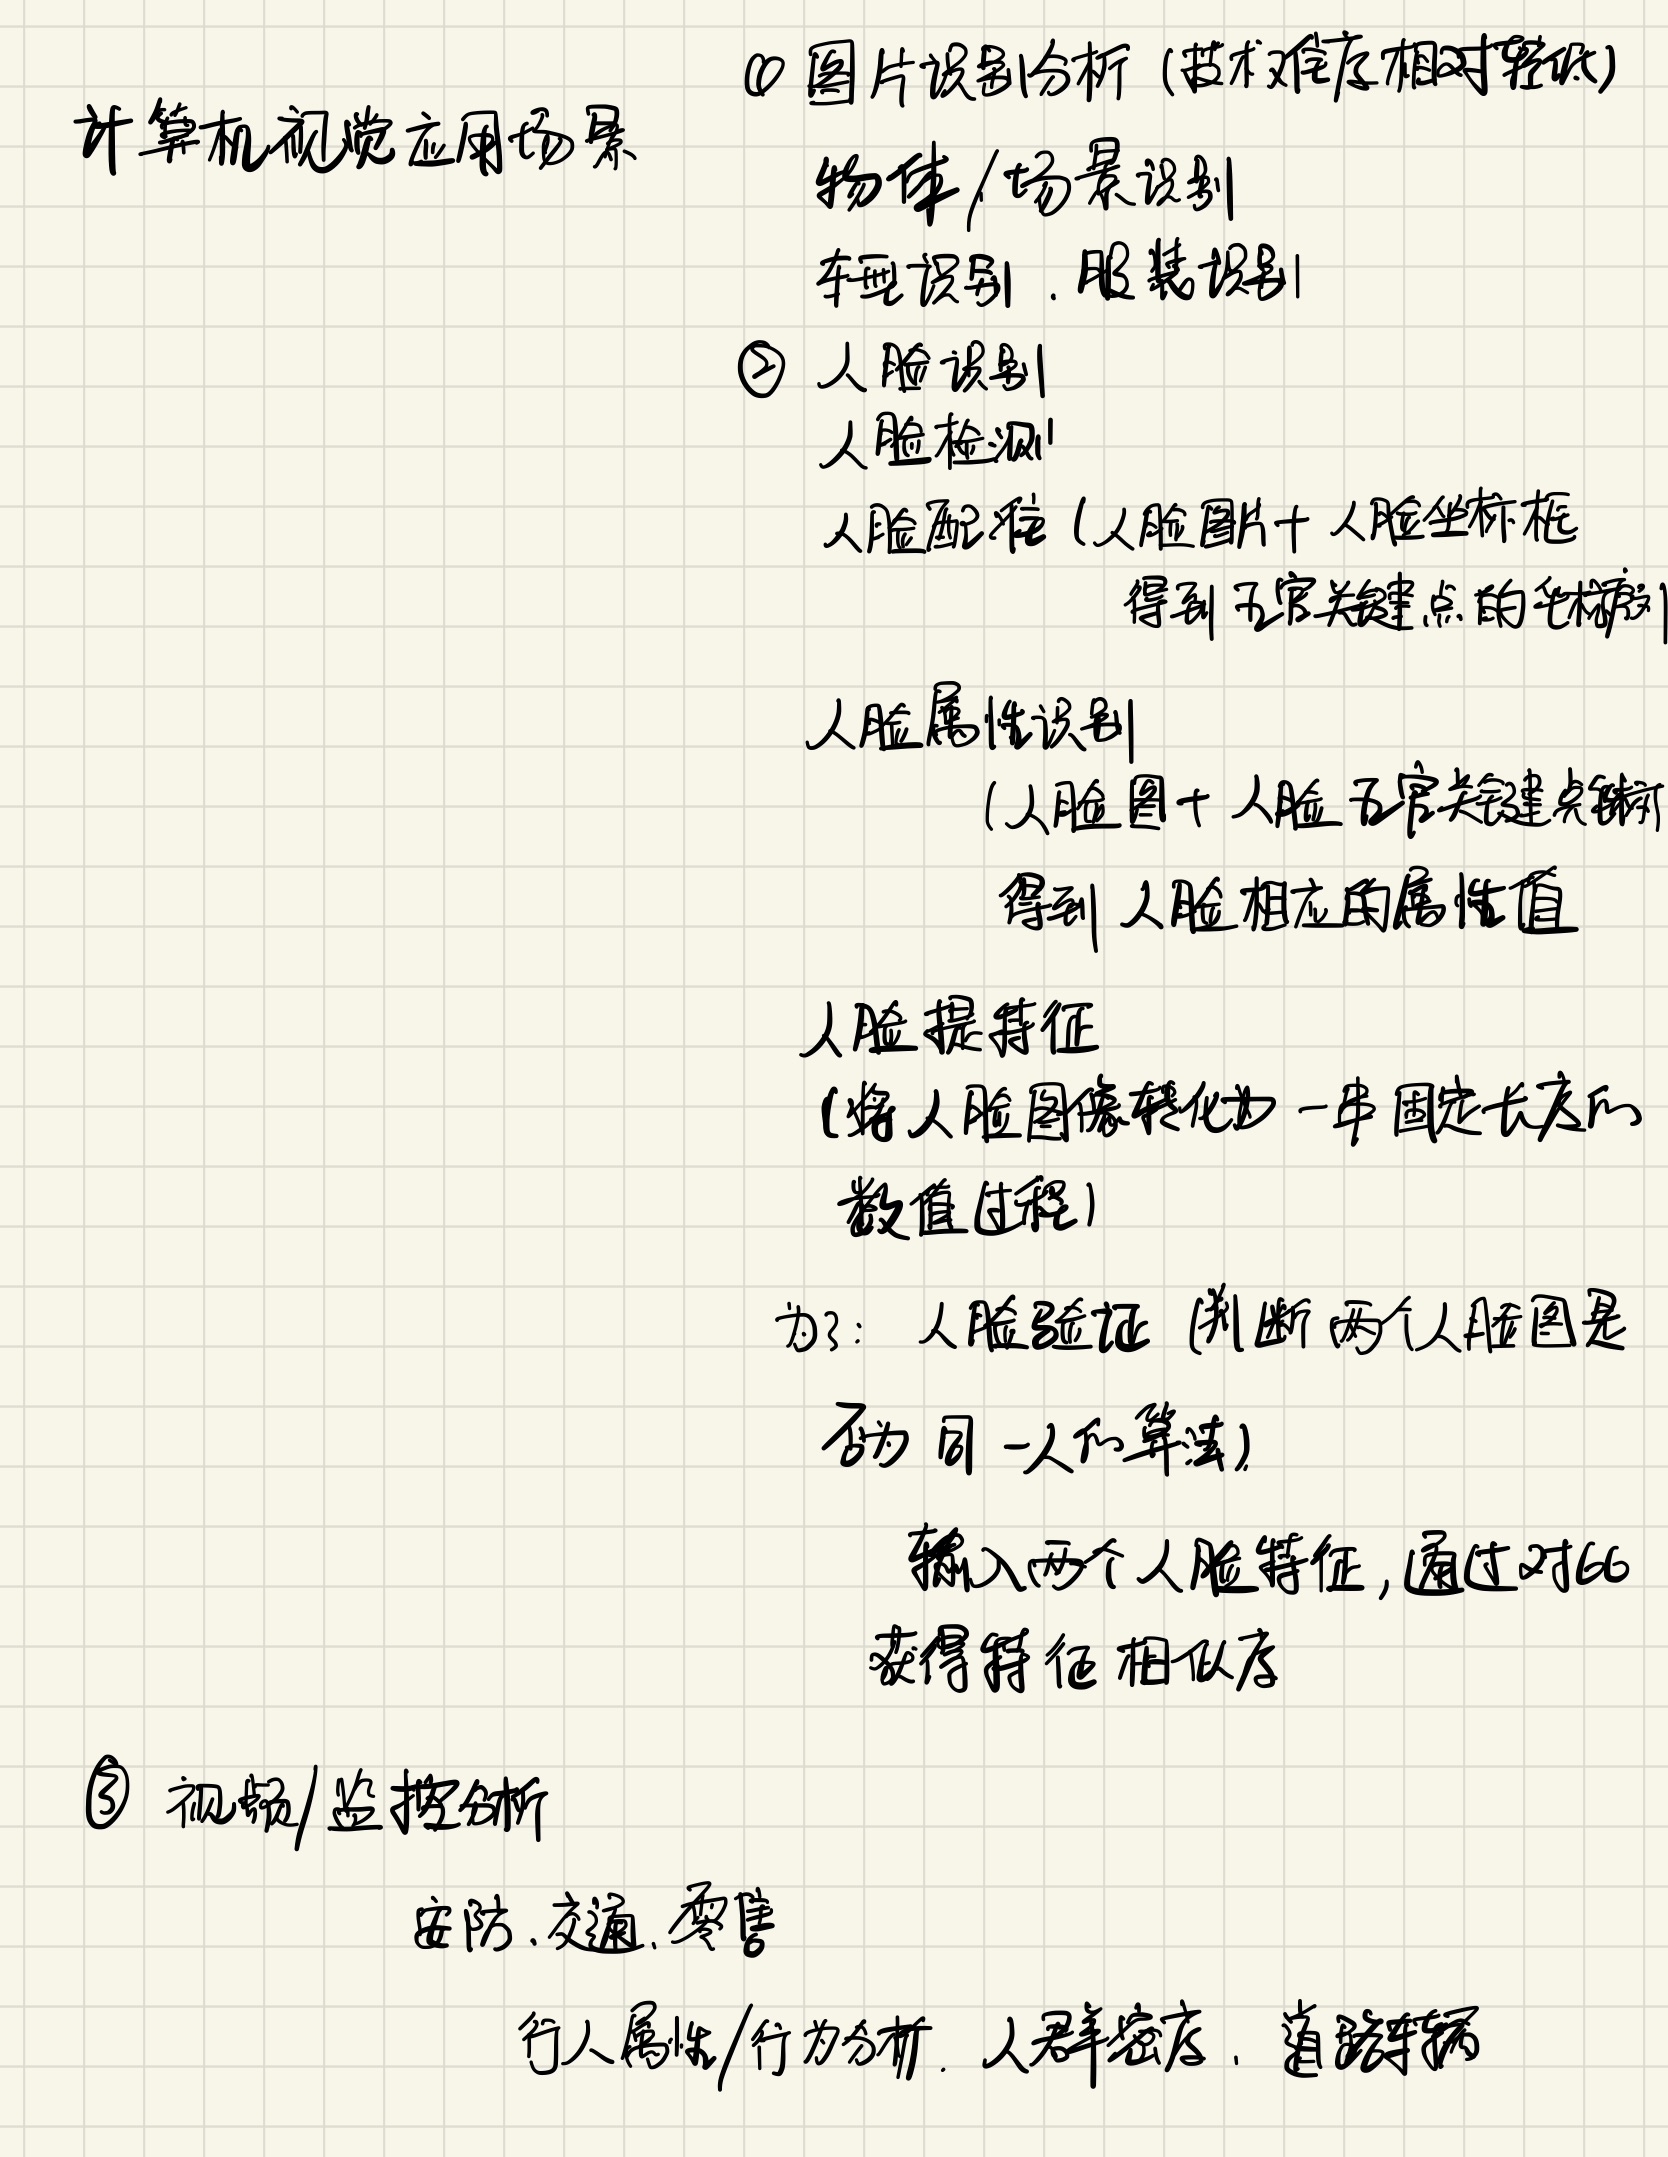 计算机视觉应用场景
① 图片识别分析（技术难度相对较低）
物体/场景识别
车型识别、服装识别
② 人脸识别
人脸检测
人脸配准（人脸图片+人脸坐标框
得到五官关键点的坐标序列
人脸属性识别
（人脸图+人脸五官关键点坐标
得到人脸相应的属性值
人脸提特征
（将人脸图像转化为一串固定长度的
数值过程）
为了：人脸验证（判断两个人脸图是
否为同一人的算法）
输入两个人脸特征，通过对比
获得特征相似度
③ 视频/监控分析
安防、交通、零售
行人属性/行为分析、人群密度、道路车辆